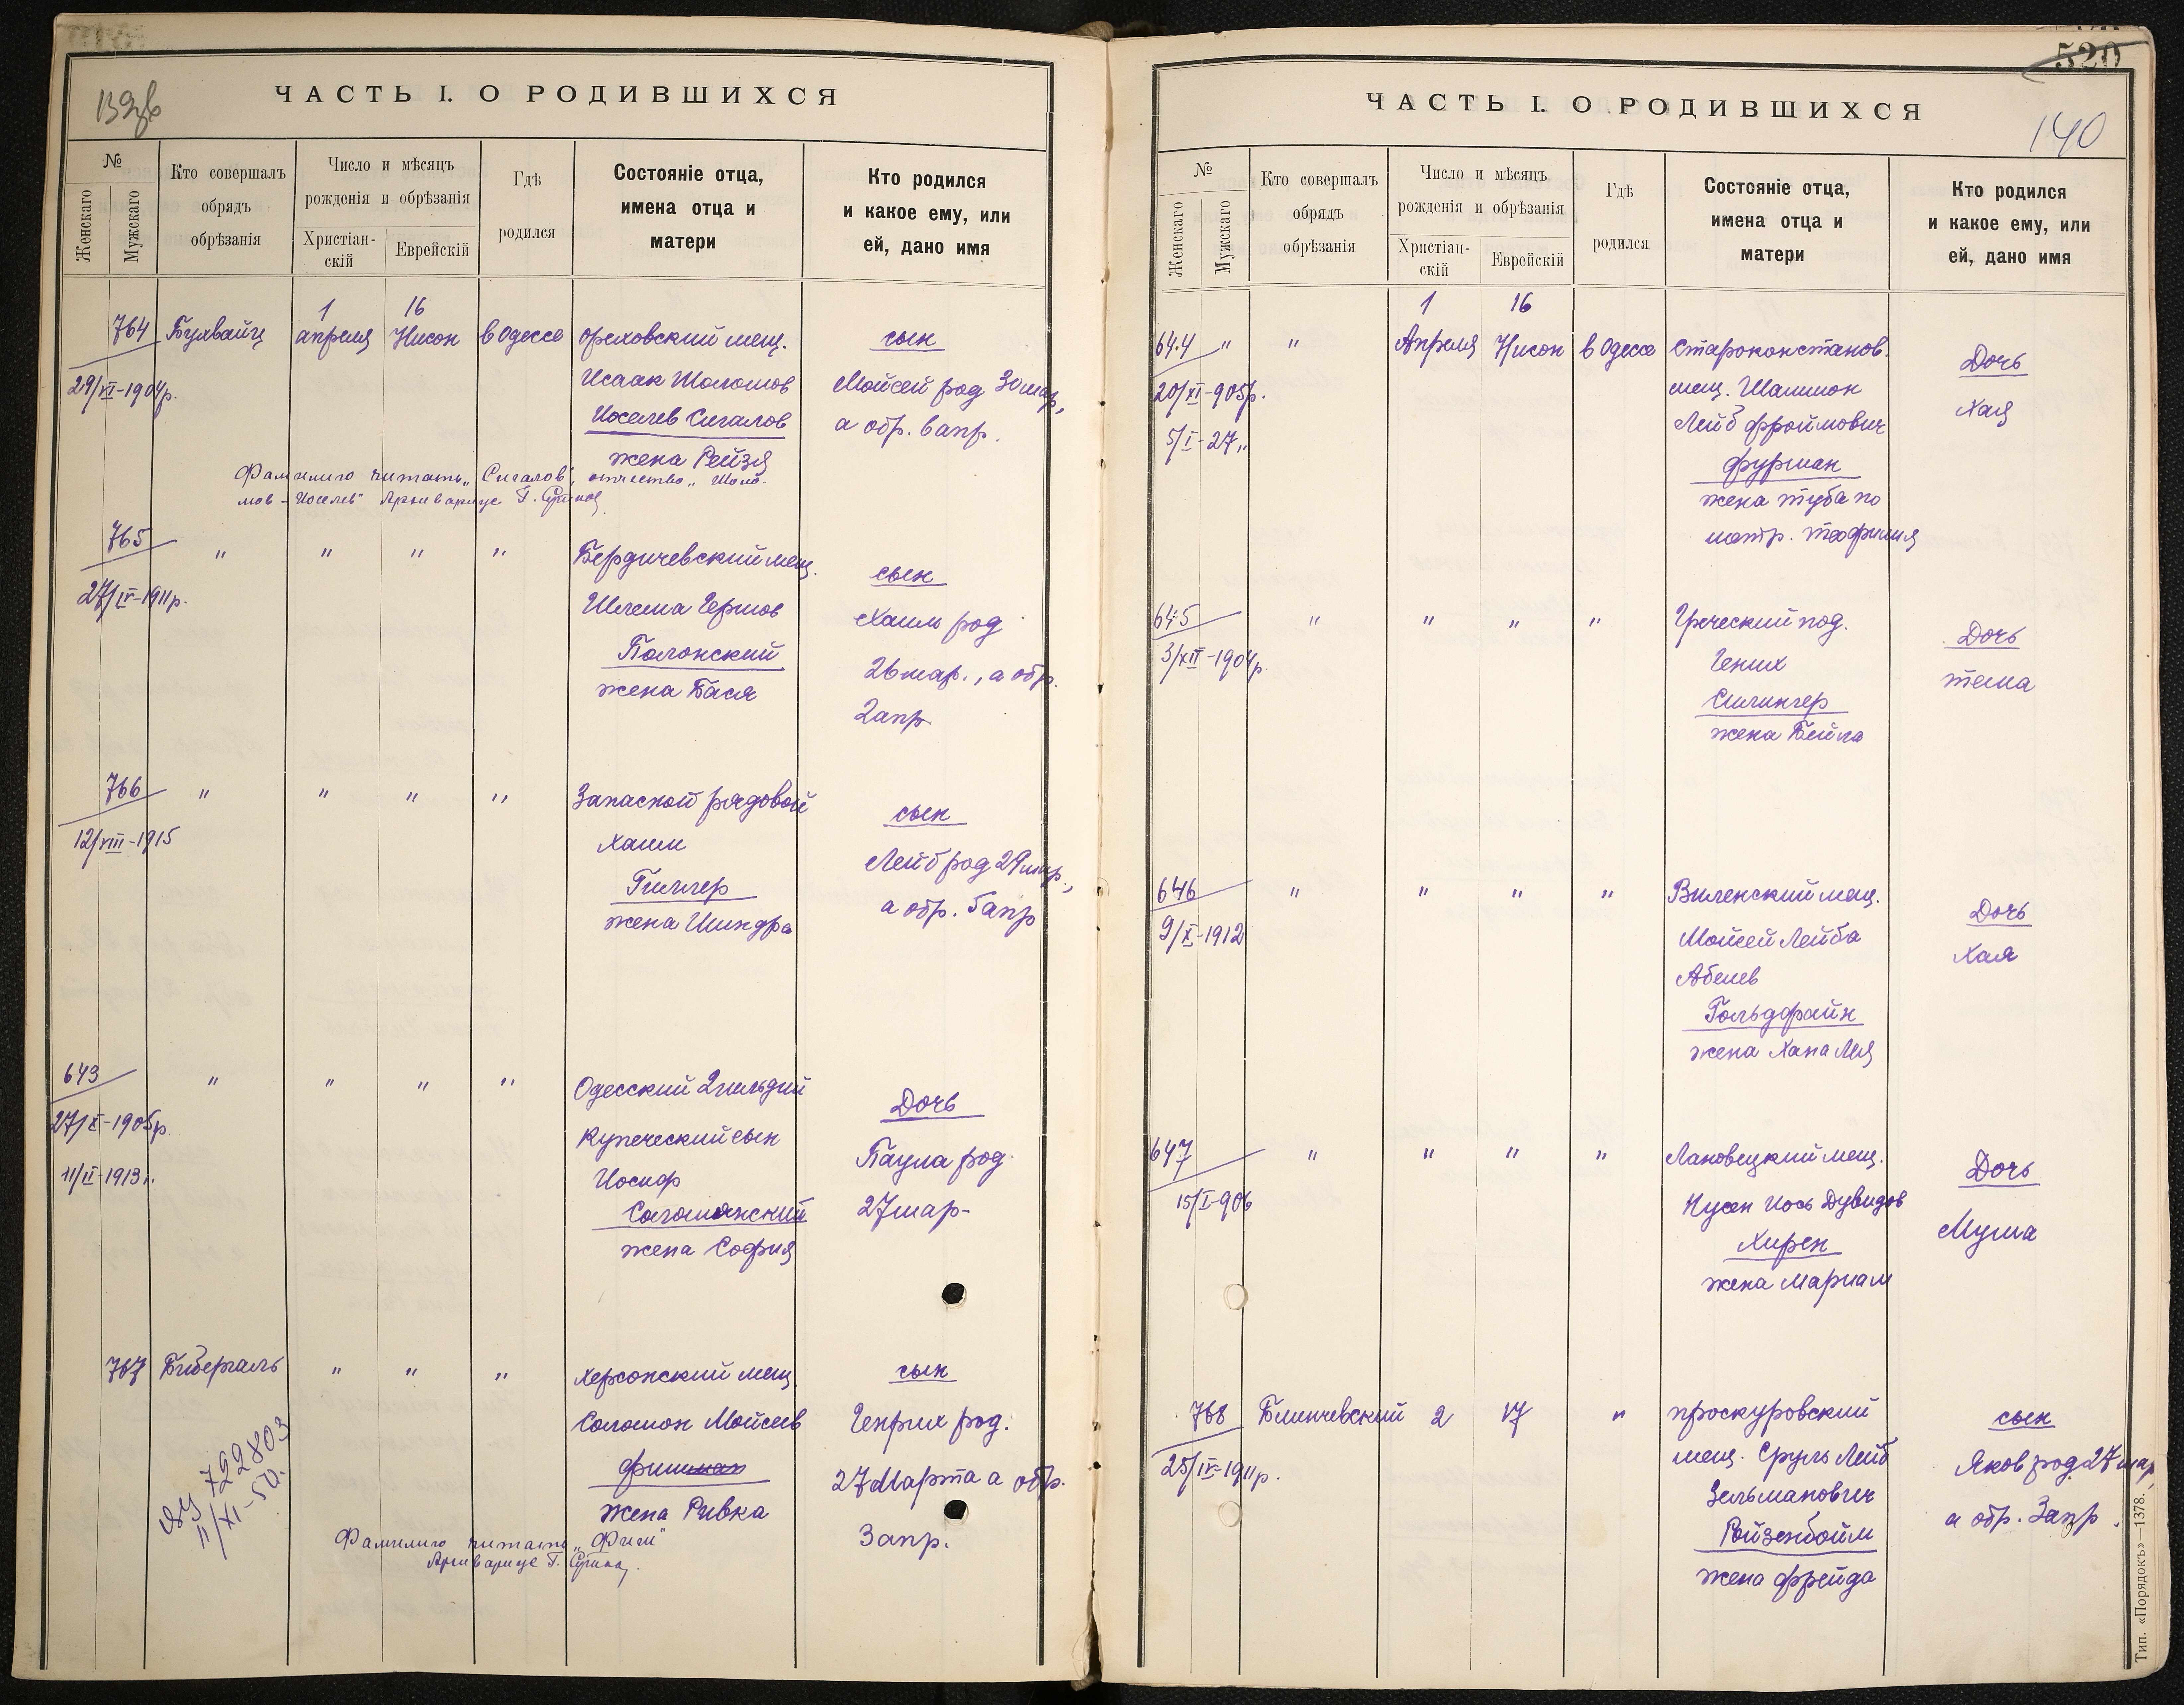 139об
ЧАСТЬ I. О РОДИВШИХСЯ
№
Женскаго
Мужскаго
Кто совершалъ
обрядъ
обрѣзанія
Число и мѣсяцъ
рожденія и обрѣзанія
Христіан-
скій
Еврейскій
Гдѣ
родился
Состояніе отца,
имена отца и
матери
Кто родился
и какое ему, или
ей, дано имя
1 16
764 Бухвайц апреля Нисон в Одессе Ореховский мещ. сын
29/VI-1904р. Исаак Шоломов Мойсей род 30 мар,
Иоселев Сигалов а обр. 6 апр.
жена Рейзя
Фамилию читать „Сигалов", отчество „Шоло-
мов-Иоселев" Архивариус Г.
765 " " " " Бердичевский мещ. сын
27/IV-1911р. Шлема Гершов Хаим род
Полонский 26 мар., а обр.
жена Бася 2 апр
766 " " " " Запасной рядовой сын
12/VIII-1915 Хаим Лейб род 29 мар.,
Гиллер а обр. 5 апр
жена Шиндра
643 " " " " Одесский 2 гильдии Дочь
27/X-1905р. купеческий сын Паула род.
11/II-1913г. Иосиф 27 мар-
Соломонский
жена София
767 Биберталь " " " Херсонский мещ. сын
Соломон Мойсеев Генрих род.
Фишман 27 Марта а обр.
жена Ривка 3 апр.
722803
11/XI-50.
Фамилию читать „Фиш"
Архивариус Г.
520
ЧАСТЬ I. О РОДИВШИХСЯ
140
№
Женскаго
Мужскаго
Кто совершалъ
обрядъ
обрѣзанія
Число и мѣсяцъ
рожденія и обрѣзанія
Христіан-
скій
Еврейскій
Гдѣ
родился
Состояніе отца,
имена отца и
матери
Кто родился
и какое ему, или
ей, дано имя
1 16
644 " " Апреля Нисон в Одессе Староконстанов. Дочь
20/XI-905р. мещ. Шлиомон Хая
5/I-27„ Лейб Фроймович
Фурман
жена Туба по
метр. Теофилия
645 " " " " Греческий под. Дочь
3/XII-1904р. Гених Тема
Силингер
жена Бейла
646 " " " " Виленский мещ. Дочь
9/X-1912 Мойсей Лейба Хая
Абелев
Гольдфайн
жена Хана Лея
647 " " " " Лановецкий мещ. Дочь
15/I-906 Нусен Иось Дувидов Муша
Хирен
жена Мариам
768 Блинчевский 2 17 " проскуровский сын
25/IV-1911р. мещ. Сруль Лейб Яков род 27 мар,
Зельманович а обр. 3 апр.
Ройзенбойм
жена Фрейда
Тип. «Порядокъ»—1378.